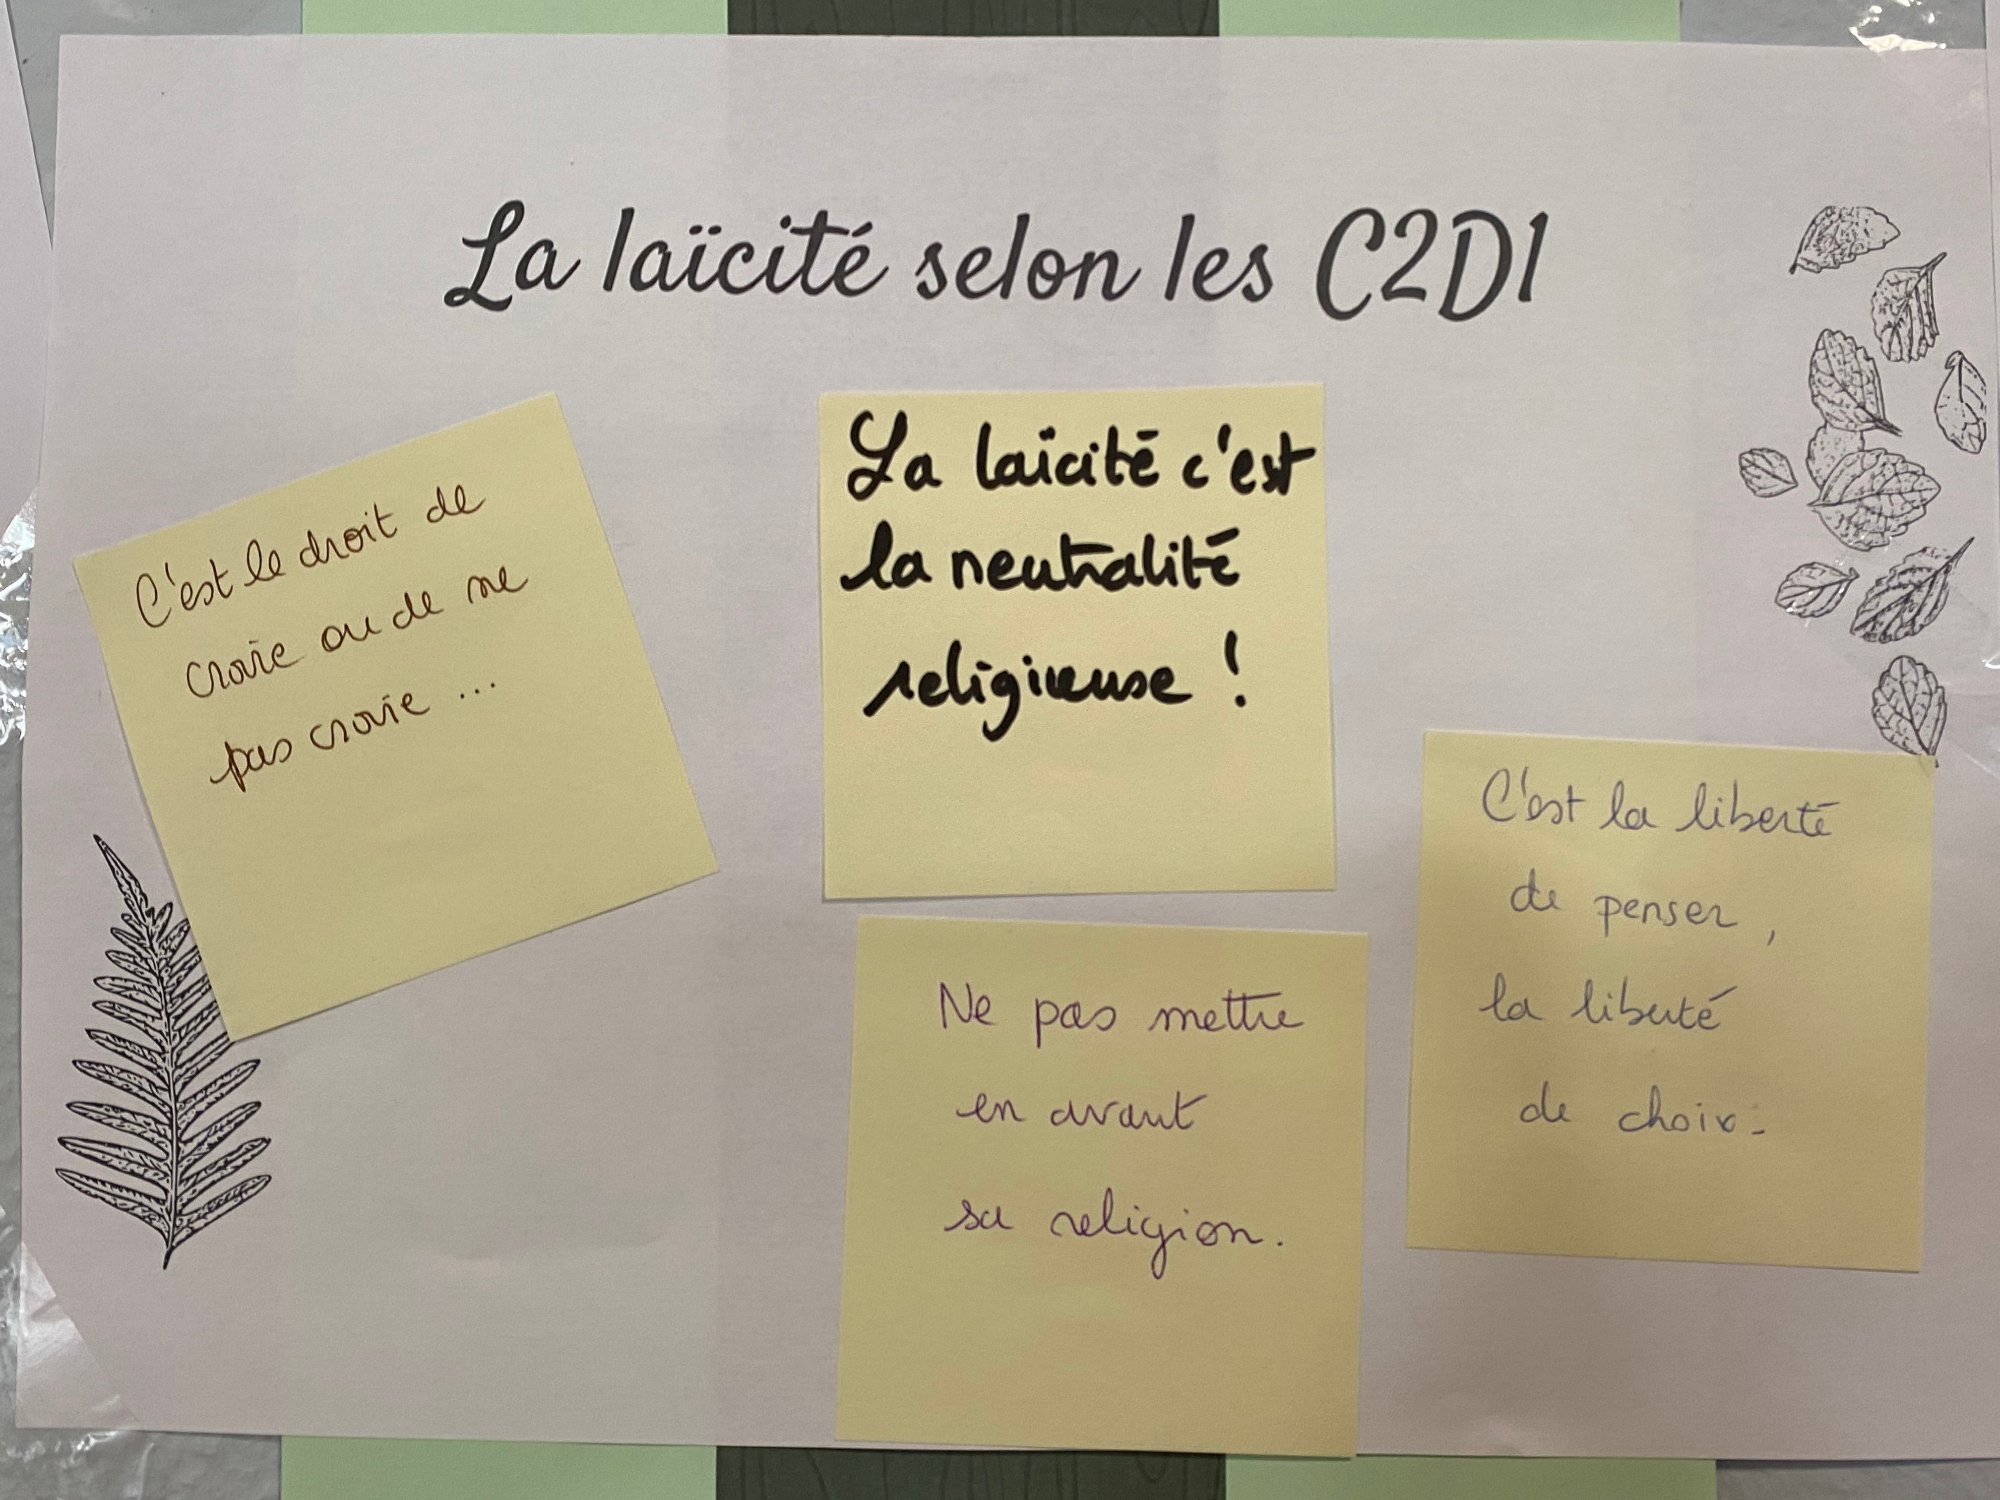 La laïcité selon les C2D1
C'est le droit de
croire ou de ne
pas croire ...
La laïcité c'est
la neutralité
religieuse !
C'est la liberté
de penser,
la liberté
de choix.
Ne pas mettre
en avant
sa religion.